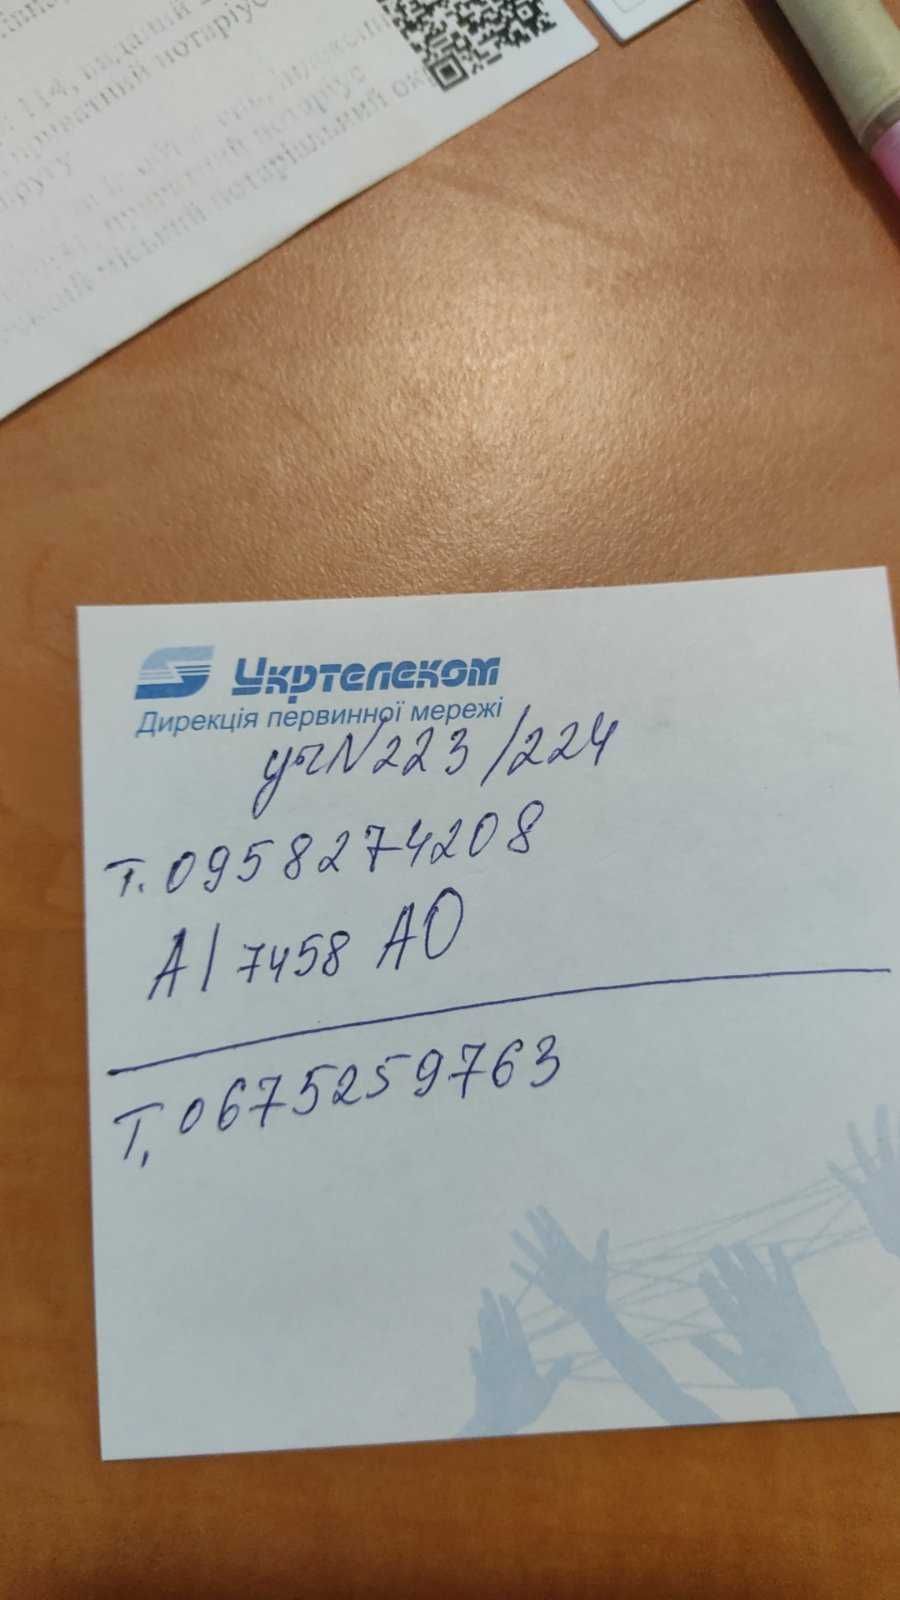 114, виданий
приватний нотаріус
приватний нотаріус
міський нотаріальний ок
Укртелеком
Дирекція первинної мережі
уч N 223/224
т. 0958274208
АІ 7458 АО
Т, 0675259763